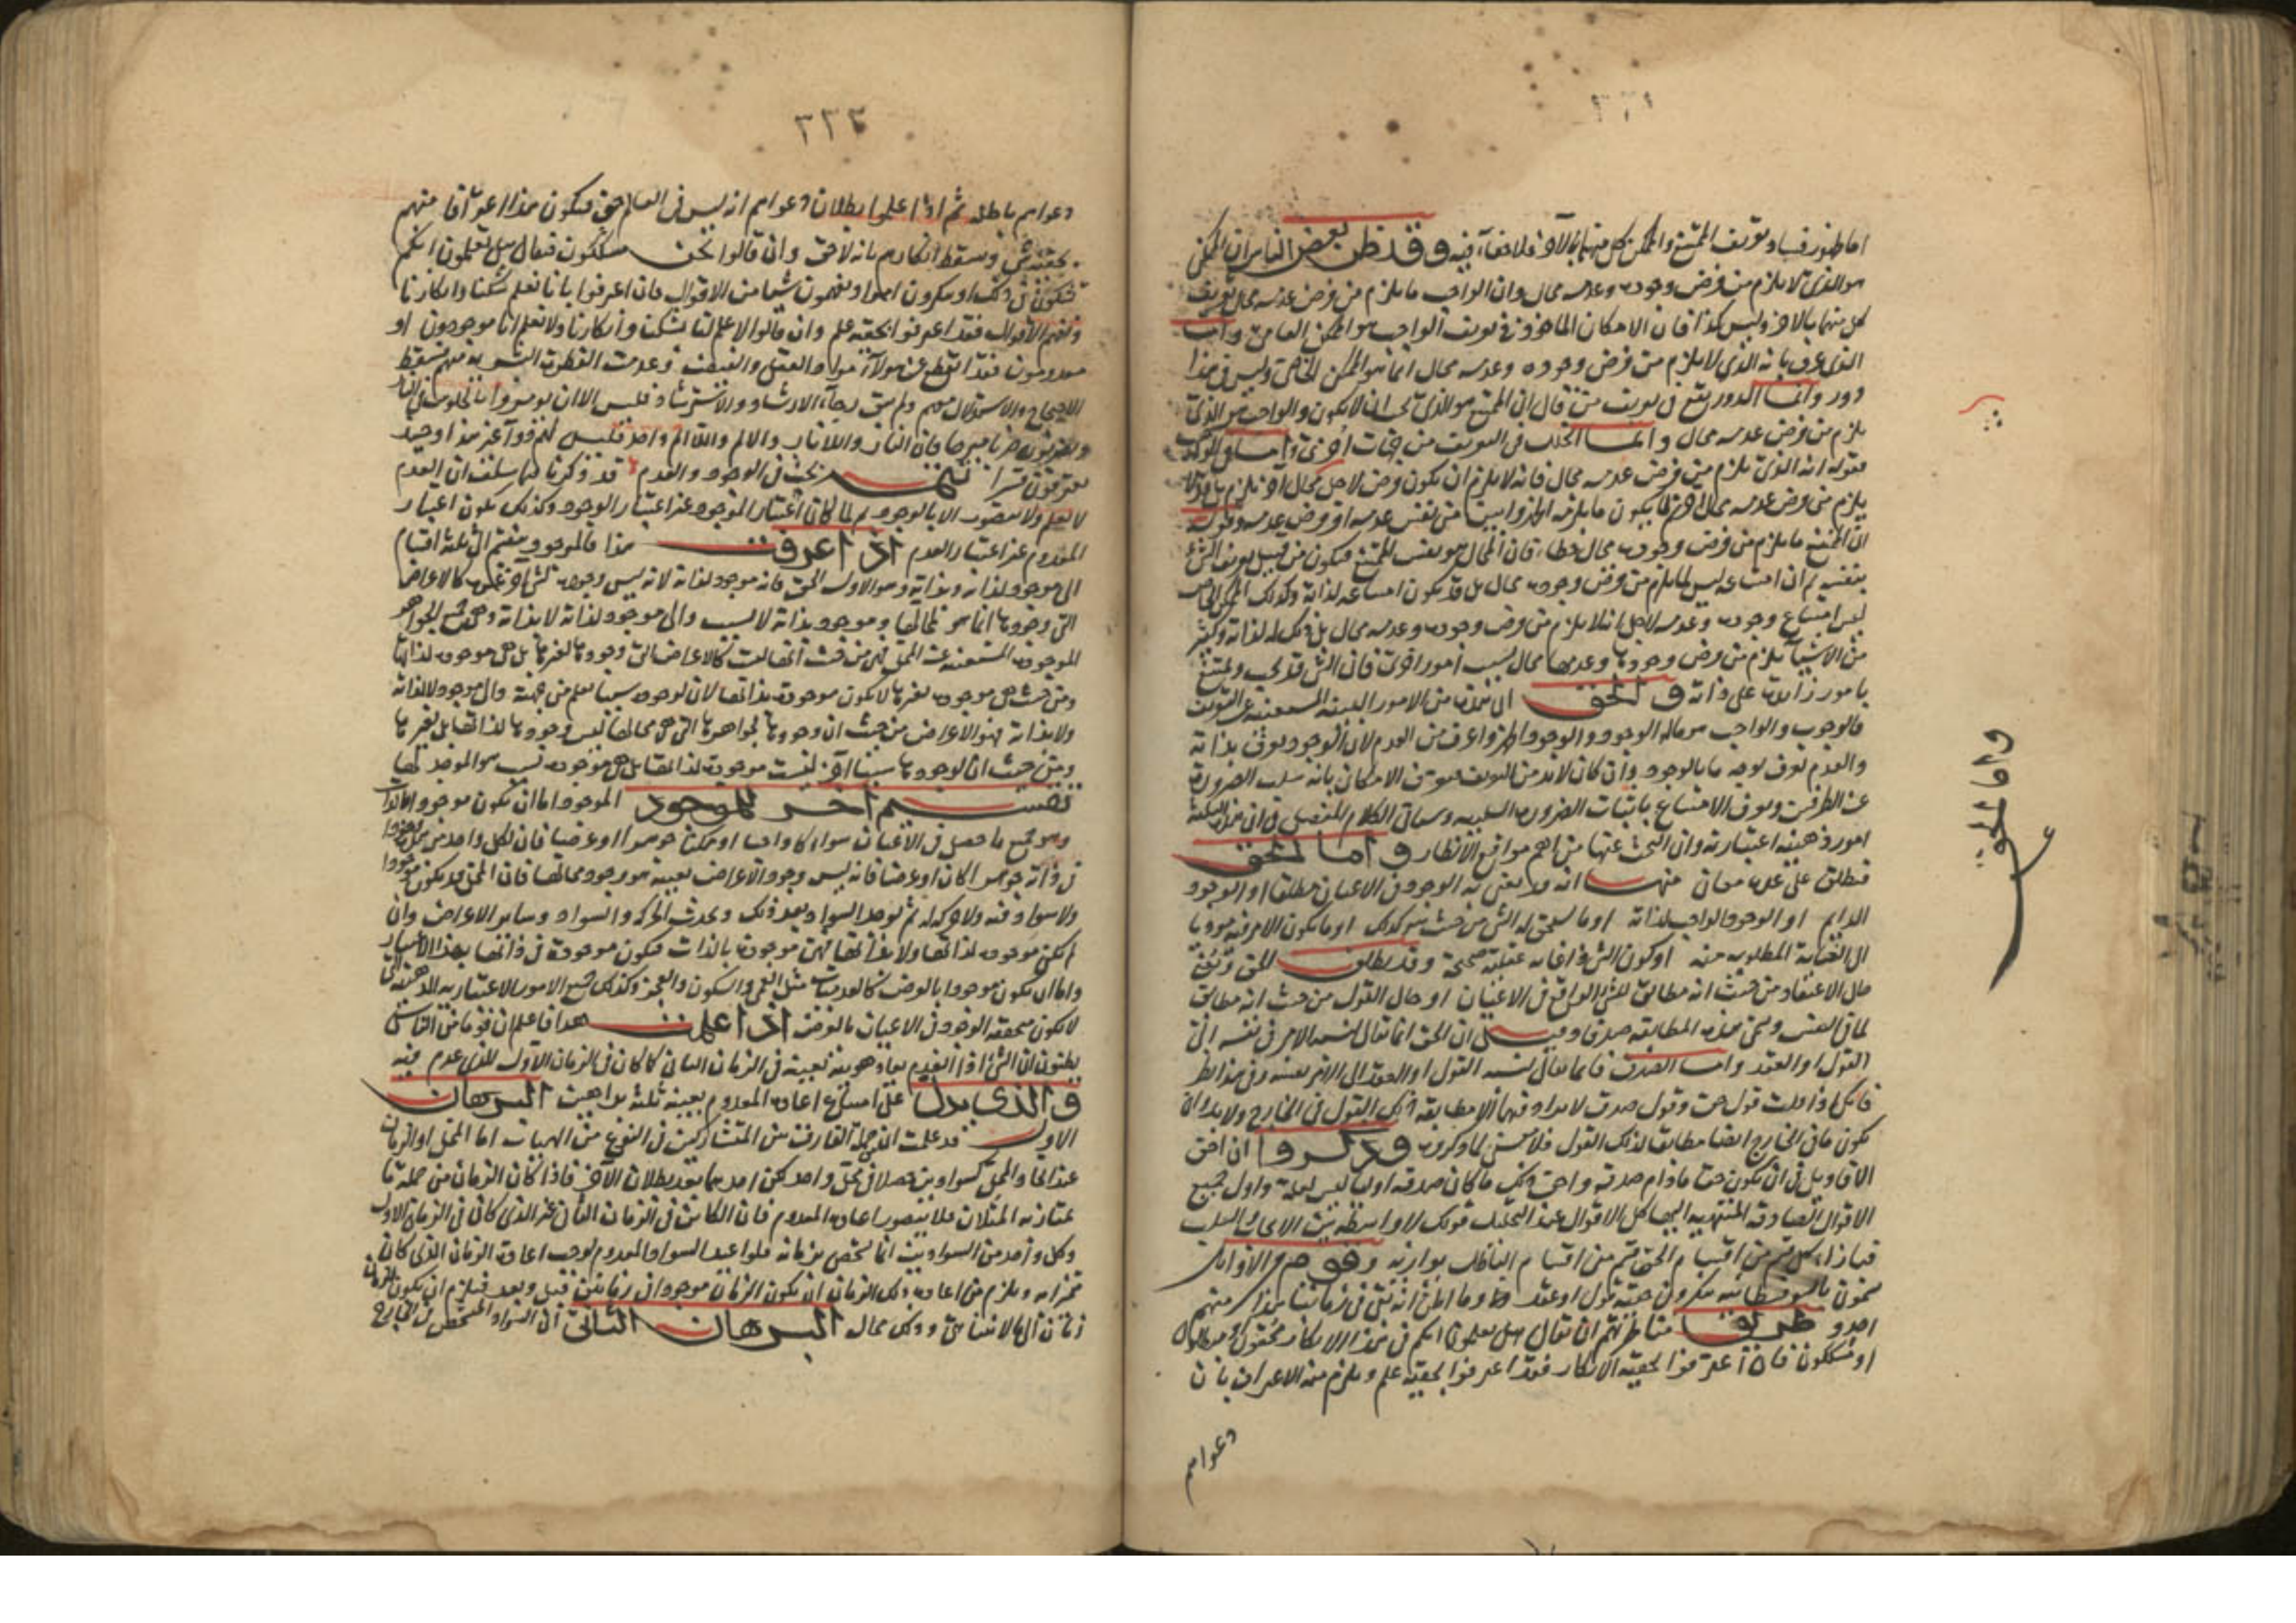 اما ظهور فساد تعريف الممتنع والممكن كل منهما بالآخر فلا خفاء فيه وقد ظن بعض الناس ان الممكن
هو الذي لا يلزم من فرض وجوده وعدمه محال وان الواجب ما يلزم من فرض عدمه محال تعريف
كل منهما بالاخر وليس كذا فان الامكان الماخوذ في تعريف الواجب هو الممكن العامي واما
الذي عرف بانه الذي لا يلزم من فرض وجوده وعدمه محال انما هو الممكن الخاص وليس في هذا
دور وانما الدور يقع في تعريف من قال ان الممتنع هو الذي يجب ان لا يكون والواجب هو الذي
يلزم من فرض عدمه محال وانما الخلل في التعريف من جهات اخرى
بقوله انه الذي يلزم من فرض عدمه محال فانه لا يلزم ان يكون فرض لاجل محال آخر يلزم
يلزم من فرض عدمه محال من نفس عدمه او فرض عدمه وقوله
ان الممتنع ما يلزم من فرض وجوده محال خطاء فان المحال هو نفس الممتنع فيكون من قبيل تعريف الشئ
بنفسه ثم ان امتناعه ليس لما يلزم من فرض وجوده محال بل قد يكون امتناعه لذاته وكذلك الممكن
ليس امتناع وجوده وعدمه لاجل انه لا يلزم من فرض وجوده وعدمه محال بل ذلك له لذاته وكثير
من الاشياء يلزم من فرض وجودها وعدمها محال بسبب امور اخرى فان الشئ قد يجب ويمتنع
بامور زائدة على ذاته والحق ان الثلثة من الامور البينة المستغنية عن التعريف
فالوجوب والواجب هو ماله الوجود والوجود اظهر واعرف من العدم لان الوجود يعرف بذاته
والعدم يعرف بوجه ما بالوجود وان كان لابد من التعريف فيعرف الامكان بانه سلب الضرورة
عن الطرفين ويعرف الامتناع باثبات الضرورة السلبية وسياتي الكلام المفصل في ان هذه الثلثة
امور ذهنية اعتبارية وان البحث عنها من اهم مواقع الانظار واما الحق
فيطلق على عدة معان منها انه قد يعنى به الوجود في الاعيان مطلقا او الوجود
الدايم او الوجود الواجب لذاته
الى الغاية المطلوبة منه او كون الشئ ذا غاية عقلية صحيحة وقد يطلق الحق ويعنى
حال الاعتقاد من حيث انه مطابق للشئ الواقع في الاعيان او حال القول من حيث انه مطابق
لما في النفس وتسمى هذه المطابقة صدقا وقيل ان الحق انما يقال لنسبة الامر في نفسه الى
القول او العقد واما الصدق فانما يقال لنسبة القول او العقد الى الامر نفسه وفي هذا نظر
فانك اذا قلت قول حق وقول صدق لابد فيهما من مطابقة ذلك القول في الخارج ولابد ان
يكون ما في الخارج ايضا مطابقا لذلك القول وذكروا ان احق
الاقاويل في ان يكون حقا ما دام صدقه واحق ذلك ما كان صدقه اوليا ليس لعلة واول جميع
الاقوال الصادقة المنتهية اليها كل الاقوال عند التحليل قولك لا واسطة بين الايجاب والسلب
فبازاء كل قسم من اقسام الحق قسم من اقسام الباطل يوازيه وقوم من الاوائل
يسمون بالسوفسطائية ينكرون حقية قول او عقد وما اظن انه بقي في زماننا هذا منهم
احد وطريق مناظرتهم ان يقال هل تعلمون انكم في هذا الانكار محقون او مبطلون
او تشكون فان اعترفوا بحقية الانكار فقد اعترفوا بحقية علم ويلزم منه الاعتراف بان
دعواهم
واما الحق
٢٢٢
دعواهم باطلة ثم اذا علموا بطلان دعواهم انه ليس في العالم حق فيكون هذا اعترافا منهم
بحقية شئ وسقط انكارهم بانه لا حق وان قالوا نحن مشككون فيقال هل تعلمون انكم
شككون في ذلك او تنكرون او تفهمون شيئا من الاقوال فان اعترفوا بانا نعلم شكنا وانكارنا
ونفهم الاقوال فقد اعترفوا بحقية علم وان قالوا لا علم لنا بشكنا وانكارنا ولا نعلم انا موجودون او
معدومون فقد انقطع عن هؤلاء مواد العقل وعدمت الفطرة البشرية منهم فسقط
الاحتجاج والاستدلال معهم ولم يبق رجاء الارشاد والاسترشاد فليس الا ان يؤمروا بالدخول في النار
ويضربون ضربا مبرحا فان النار واللانار والالم واللاالم واحد فليس لهم
يعترفون قسرا تتمة بحث في الوجود والعدم قد ذكرنا فيما سلف ان العدم
لا يعلم ولا يتصور الا بالوجود ثم لما كان اعتبار الموجود غير اعتبار الوجود وكذلك يكون اعتبار
المعدوم غير اعتبار العدم اذا عرفت هذا فالموجود ينقسم الى ثلثة اقسام
الى موجود لذاته وبذاته وهو الاول الحق فانه موجود لذاته لانه ليس وجوده لشئ آخر غيره كالاعراض
التي وجودها انما هو لمحالها وموجود بذاته لا بسبب والى موجود لذاته لا بذاته وهو جميع الجواهر
الموجودة المستغنية عن المحل فهي من حيث انها ليست كالاعراض التي وجودها لغيرها بل هي موجودة لذاتها
ومن حيث هي موجودة بغيرها لا يكون موجودة بذاتها لان لوجوده سببا يعلم من جهته والى موجود لا لذاته
ولا بذاته فهو الاعراض من حيث ان وجودها لجواهرها التي هي محالها ليس وجودها لذاتها بل لغيرها
ومن حيث ان لوجودها سببا آخر ليست موجودة لذاتها بل هي موجودة بسبب هو الموجد لها
تقسيم آخر للموجود الموجود اما ان يكون موجودا بالذات
وهو جميع ما حصل في الاعيان سواء كان واجبا او ممكنا جوهرا او عرضا فان لكل واحد من هذه وجودا
في ذاته جوهرا كان او عرضا فانه ليس وجود الاعراض بعينه هو وجود محالها فان الممكن قد يكون موجودا
ولا سواد فيه ولا حركة له ثم يوجد السواد بعد ذلك ويحدث الحركة والسواد وساير الاعراض وان
لم تكن موجودة لذاتها ولا بذاتها فهي موجودة بالذات فيكون موجودة في ذاتها بهذا الاعتبار
واما ان يكون موجودا بالعرض كالعدميات مثل العمى والسكون والعجز وكذلك جميع الامور الاعتبارية الذهنية التي
لا يكون متحققة الوجود في الاعيان بالعرض اذا علمت هذا فاعلم ان قوما من الناس
يظنون ان الشئ اذا انعدم يعاد هويته بعينه في الزمان الثاني كما كان في الزمان الاول الذي عدم فيه
والذي يدل على امتناع اعادة المعدوم بعينه ثلثة براهين البرهان
الاول قد علمت ان من جملة الفارق بين المتشاركين في النوع من الهيئات اما المحل او الزمان
عند اتحاد المحل كسوادين حصلا في محل واحد لكن احدهما بعد بطلان الآخر فاذا كان الزمان من جملة ما
يمتاز به المثلان فلا يتصور اعادة المعدوم فان الكائن في الزمان الثاني غير الذي كان في الزمان الاول
وكل واحد من السوادين انما يتخصص بزمانه فلو اعيد السواد المعدوم لوجب اعادة الزمان الذي كان
تميزا به ويلزم من اعادة ذلك الزمان ان يكون الزمان موجودا في زمانين قبل وبعد فيلزم ان يكون للزمان
زمان الى ما لا يتناهى وذلك محال البرهان الثاني ان السواد المتخصص في الخارج